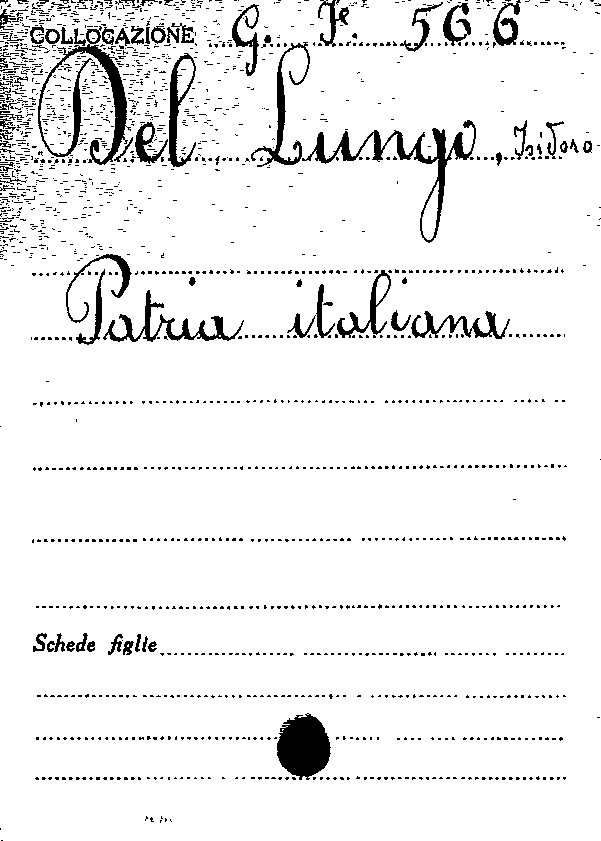 COLLOCAZIONE G. Fe. 566
Del Lungo, Isidoro
Patria italiana
Schede figlie